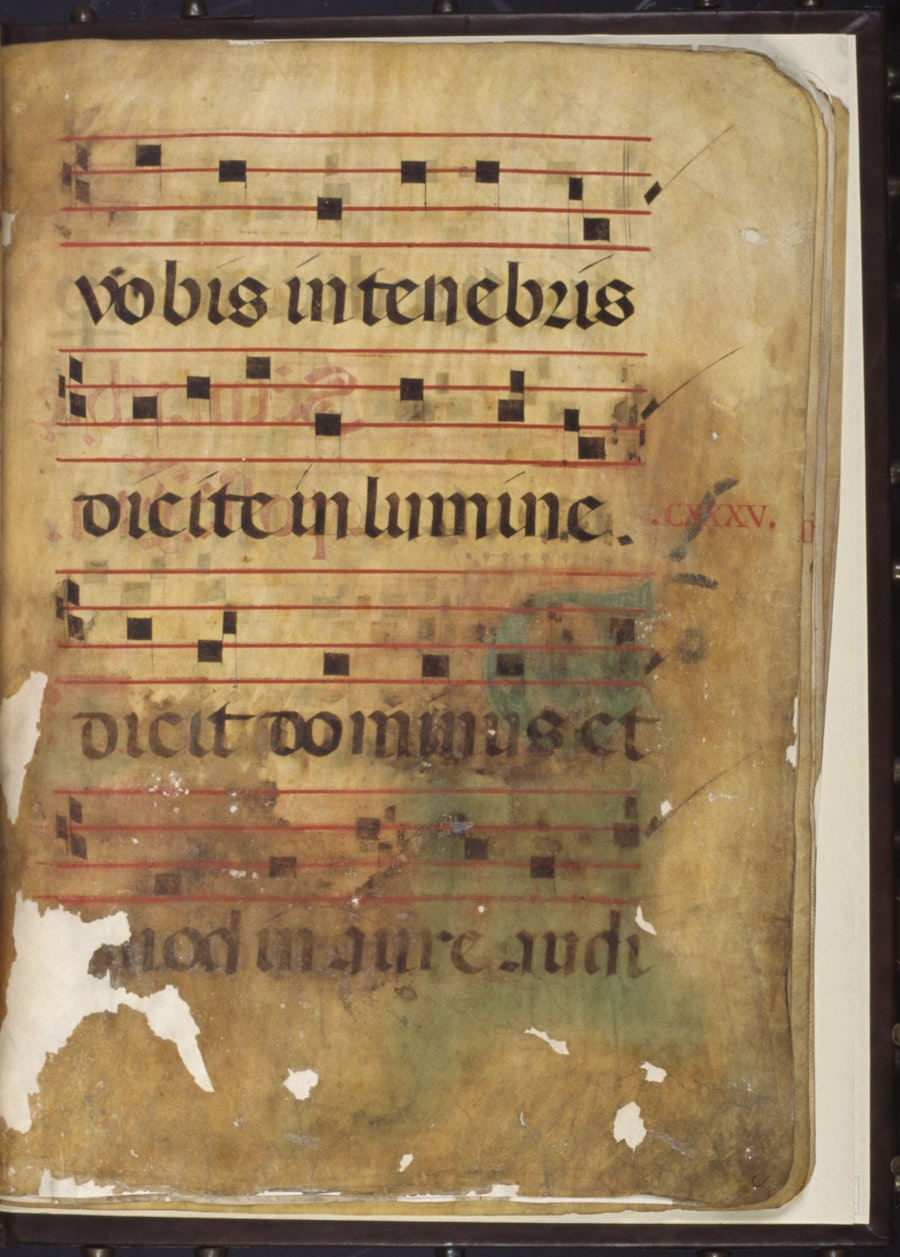 vobis in tenebris
dicite in lumine.
.CXXXV.
dicit dominus et
quod in aure audi